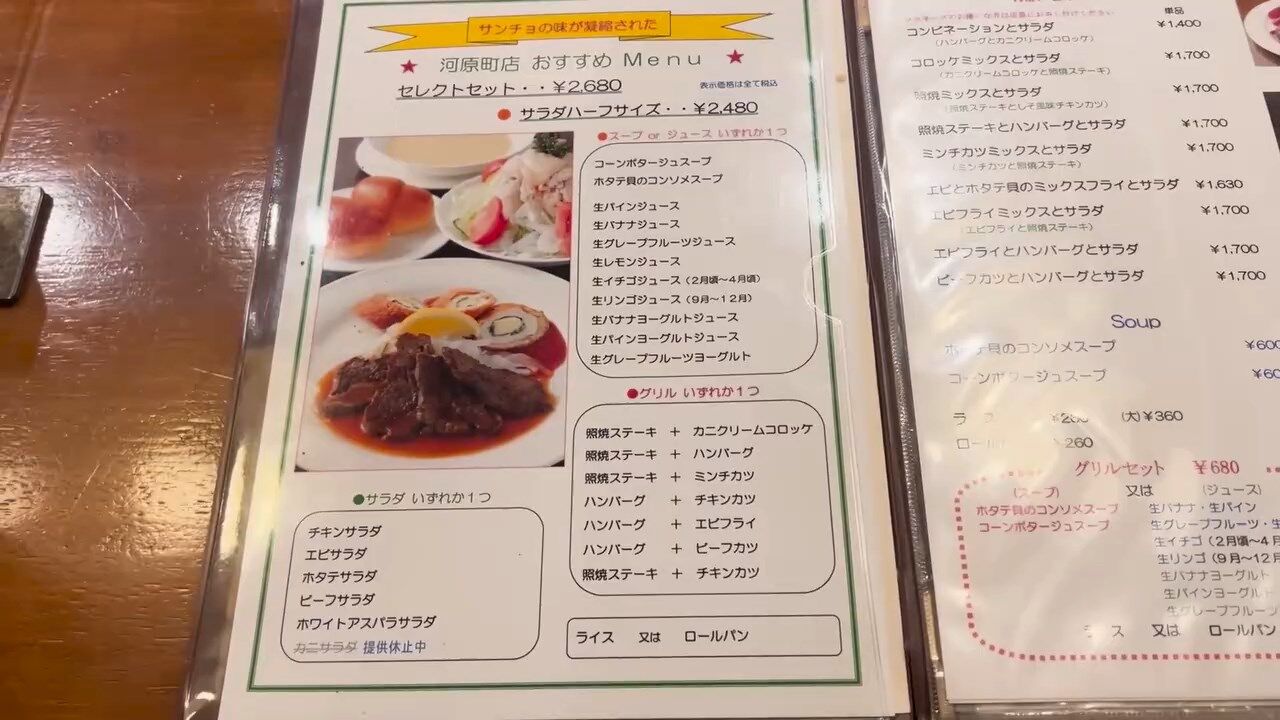 サンチョの味が凝縮された
河原町店 おすすめ Menu
セレクトセット・・¥2,680
表示価格は全て税込
● サラダハーフサイズ・・¥2,480
●スープ or ジュース いずれか1つ
コーンポタージュスープ
ホタテ貝のコンソメスープ
生パインジュース
生バナナジュース
生グレープフルーツジュース
生レモンジュース
生イチゴジュース (2月頃〜4月頃)
生リンゴジュース (9月〜12月)
生バナナヨーグルトジュース
生パインヨーグルトジュース
生グレープフルーツヨーグルト
●グリル いずれか1つ
照焼ステーキ + カニクリームコロッケ
照焼ステーキ + ハンバーグ
照焼ステーキ + ミンチカツ
ハンバーグ + チキンカツ
ハンバーグ + エビフライ
ハンバーグ + ビーフカツ
照焼ステーキ + チキンカツ
●サラダ いずれか1つ
チキンサラダ
エビサラダ
ホタテサラダ
ビーフサラダ
ホワイトアスパラサラダ
カニサラダ 提供休止中
ライス 又は ロールパン
単品
コンビネーションとサラダ ¥1,400
(ハンバーグとカニクリームコロッケ)
コロッケミックスとサラダ ¥1,700
(カニクリームコロッケと照焼ステーキ)
照焼ミックスとサラダ ¥1,700
(照焼ステーキとしそ風味チキンカツ)
照焼ステーキとハンバーグとサラダ ¥1,700
ミンチカツミックスとサラダ ¥1,700
(ミンチカツと照焼ステーキ)
エビとホタテ貝のミックスフライとサラダ ¥1,630
エビフライミックスとサラダ ¥1,700
(エビフライと照焼ステーキ)
エビフライとハンバーグとサラダ ¥1,700
ビーフカツとハンバーグとサラダ ¥1,700
Soup
ホタテ貝のコンソメスープ ¥600
コーンポタージュスープ ¥60
ライス (大)¥360
ロール ¥260
グリルセット ¥680
(スープ) 又は (ジュース)
ホタテ貝のコンソメスープ 生バナナ・生パイン
コーンポタージュスープ 生グレープフルーツ・生
生イチゴ (2月頃〜4月
生リンゴ (9月〜12月
生バナナヨーグルト
生パインヨーグルト
生グレープフルーツ
ライス 又は ロールパン